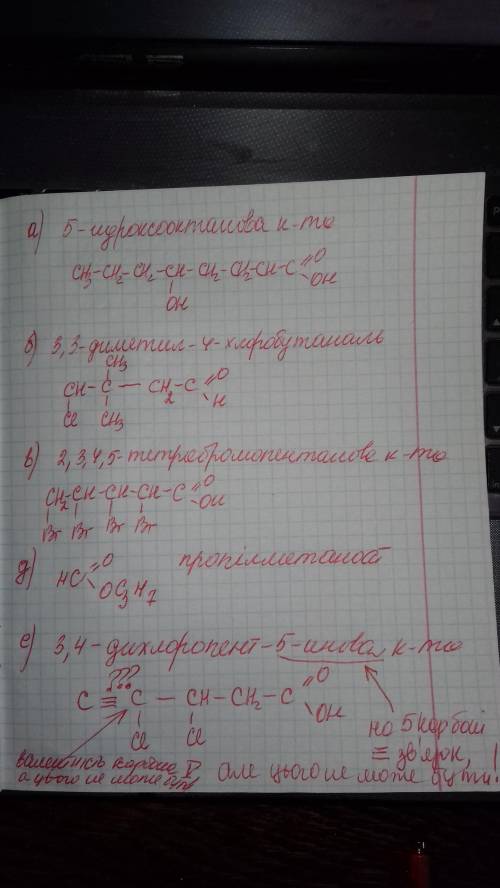 а) 5-гідроксооктанова к-та
CH3-CH2-CH2-CH-CH2-CH2-CH-C=O
OH
OH
б) 3,3-диметил-4-хлоробутаналь
CH3
CH-C—CH2-C=O
H
Cl CH3
в) 2,3,4,5-тетрабромопентанова к-та
CH2-CH-CH-CH-C=O
OH
Br Br Br Br
д) HC=O пропілметаноат
OC3H7
е) 3,4-дихлоропент-5-инова к-та
???
C≡C—CH-CH2-C=O
OH
Cl Cl
на 5 карбоні
≡ зв'язок,
валентність карбону V
а цього не може бути
але цього не може бути!